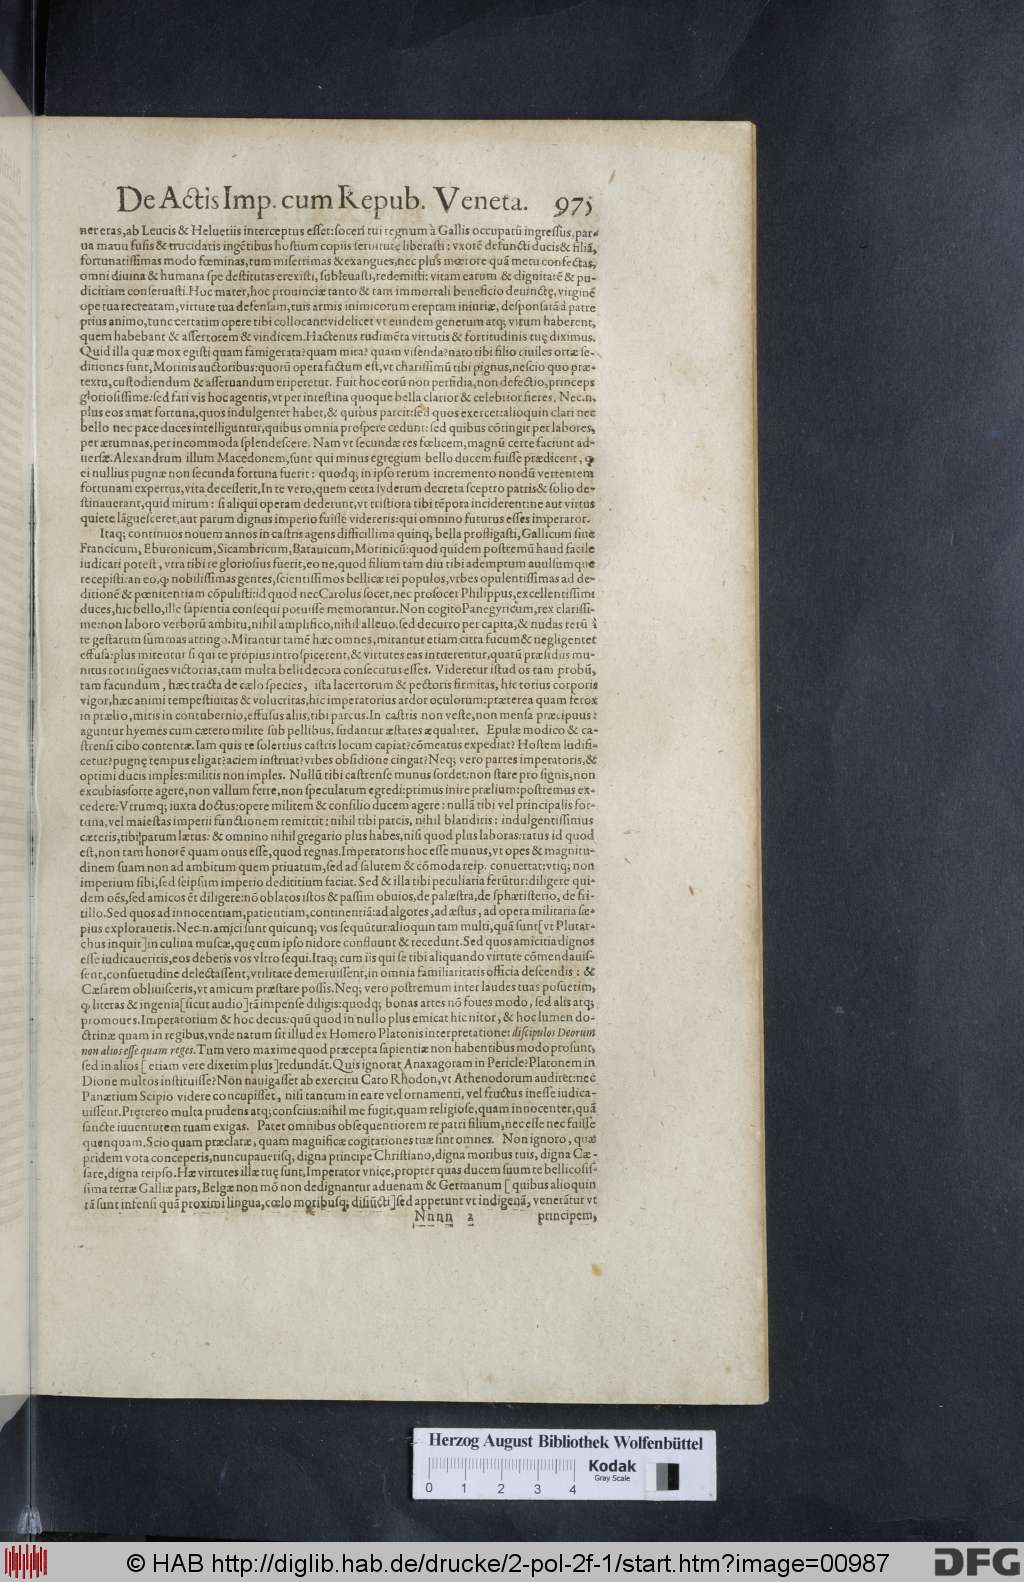 De Actis Imp. cum Repub. Veneta. 975
ner eras, ab Leucis & Heluetiis interceptus esset: soceri tui regnum à Gallis occupatū ingressus, par-
ua manu fusis & trucidatis ingētibus hostium copiis seruitute liberasti: vxorē defuncti ducis & filiā,
fortunatissimas modo fœminas, tum miserrimas & exangues, nec plus mœrore quā metu confectas,
omni diuina & humana spe destitutas erexisti, subleuasti, redemisti: vitam earum & dignitatē & pu-
dicitiam conseruasti. Hoc mater, hoc prouinciæ tanto & tam immortali beneficio deuinctę, virginē
ope tua recreatam, virtute tua defensam, tuis armis inimicorum ereptam iniuriæ, desponsatā à patre
prius animo, tunc certatim opere tibi collocant: videlicet vt eundem generum atq; virum haberent,
quem habebant & assertorem & vindicem. Hactenus rudimēta virtutis & fortitudinis tuę diximus.
Quid illa quæ mox egisti quam famigerata? quam mira? quam visenda? nato tibi filio ciuiles ortæ se-
ditiones sunt, Morinis auctoribus: quorū opera factum est, vt charissimū tibi pignus, nescio quo præ-
textu, custodiendum & asseruandum eriperetur. Fuit hoc eorū non perfidia, non defectio, princeps
gloriosissime: sed fati vis hoc agentis, vt per intestina quoque bella clarior & celebrior fieres. Nec.n.
plus eos amat fortuna, quos indulgenter habet, & quibus parcit: sed quos exercet: alioquin clari nec
bello nec pace duces intelliguntur, quibus omnia prospere cedunt: sed quibus cōtingit per labores,
per ærumnas, per incommoda splendescere. Nam vt secundæ res fœlicem, magnū certe faciunt ad-
uersæ. Alexandrum illum Macedonem, sunt qui minus egregium bello ducem fuisse prædicent, ꝙ
ei nullius pugnæ non secunda fortuna fuerit: quodq; in ipso rerum incremento nondū vertentem
fortunam expertus, vita decesserit. In te vero, quem certa syderum decreta sceptro patris & solio de-
stinauerant, quid mirum: si aliqui operam dederunt, vt tristiora tibi tēpora inciderent: ne aut virtus
quiete lāguesceret, aut parum dignus imperio fuisse videreris: qui omnino futurus esses imperator.
Itaq; continuos nouem annos in castris agens difficillima quinq; bella profligasti, Gallicum siue
Francicum, Eburonicum, Sicambricum, Batauicum, Morinicū: quod quidem postremū haud facile
iudicari potest, vtra tibi re gloriosius fuerit, eo ne, quod filium tam diu tibi ademptum auulsumque
recepisti: an eo, ꝙ nobilissimas gentes, scientissimos bellicæ rei populos, vrbes opulentissimas ad de-
ditionē & pœnitentiam cōpulisti: id quod nec Carolus socer, nec prosocer Philippus, excellentissimi
duces, hic bello, ille sapientia consequi potuisse memorantur. Non cogito Panegyricum, rex clarissi-
me: non laboro verborū ambitu, nihil amplifico, nihil alleuo. sed decurro per capita, & nudas rerū à
te gestarum sūmmas attingo. Mirantur tamē hæc omnes, mirantur etiam citra fucum & negligenter
effusa: plus mirentur si qui te propius introspicerent, & virtutes eas intuerentur, quarū præsidiis mu-
nitus tot insignes victorias, tam multa belli decora consecutus esses. Videretur istud os tam probū,
tam facundum, hæc tracta de cælo species, ista lacertorum & pectoris firmitas, hic totius corporis
vigor, hæc animi tempestiuitas & volucritas, hic imperatorius ardor oculorum: præterea quam ferox
in prælio, mitis in contubernio, effusus aliis, tibi parcus. In castris non veste, non mensa præcipuus:
aguntur hyemes cum cætero milite sub pellibus, sudantur æstates æqualiter. Epulæ modico & ca-
strensi cibo contentæ. Iam quis te solertius castris locum capiat? cōmeatus expediat? Hostem ludifi-
cetur? pugnę tempus eligat? aciem instruat? vrbes obsidione cingat? Neq; vero partes imperatoris, &
optimi ducis imples: militis non imples. Nullū tibi castrense munus sordet: non stare pro signis, non
excubias sorte agere, non vallum ferre, non speculatum egredi: primus inire prælium: postremus ex-
cedere: Vtrumq; iuxta doctus: opere militem & consilio ducem agere: nullā tibi vel principalis for-
tuna, vel maiestas imperii functionem remittit: nihil tibi parcis, nihil blandiris: indulgentissimus
cæteris, tibi parum lætus: & omnino nihil gregario plus habes, nisi quod plus laboras: ratus id quod
est, non tam honorē quam onus esse, quod regnas. Imperatoris hoc esse munus, vt opes & magnitu-
dinem suam non ad ambitum quem priuatum, sed ad salutem & cōmoda reip. conuertat: vtiq; non
imperium sibi, sed seipsum imperio dedititium faciat. Sed & illa tibi peculiaria ferūtur: diligere qui-
dem oēs, sed amicos ēt diligere: nō oblatos istos & passim obuios, de palæstra, de sphæristerio, de fri-
tillo. Sed quos ad innocentiam, patientiam, continentiā: ad algores, ad æstus, ad opera militaria sæ-
pius exploraueris. Nec.n. amici sunt quicunq; vos sequūtur: alioquin tam multi, quā sunt [vt Plutar-
chus inquit] in culina muscæ, quę cum ipso nidore confluunt & recedunt. Sed quos amicitia dignos
esse iudicaueritis, eos debetis vos vltro sequi. Itaq; cum iis qui se tibi aliquando virtute cōmendauis-
sent, consuetudine delectassent, vtilitate demeruissent, in omnia familiaritatis officia descendis: &
Cæsarem obliuisceris, vt amicum præstare possis. Neq; vero postremum inter laudes tuas posuerim,
ꝙ literas & ingenia [sicut audio] tā impense diligis: quodq; bonas artes nō foues modo, sed alis atq;
promoues. Imperatorium & hoc decus: quū quod in nullo plus emicat hic nitor, & hoc lumen do-
ctrinæ quam in regibus, vnde natum sit illud ex Homero Platonis interpretatione: discipulos Deorum
non alios esse quam reges. Tum vero maxime quod præcepta sapientiæ non habentibus modo prosunt,
sed in alios [etiam vere dixerim plus] redundāt. Quis ignorat Anaxagoram in Pericle? Platonem in
Dione multos instituisse? Non nauigasset ab exercitu Cato Rhodon, vt Athenodorum audiret: nec
Panætium Scipio videre concupisset, nisi tantum in ea re vel ornamenti, vel fructus inesse iudica-
uissent. Prętereo multa prudens atq; conscius: nihil me fugit, quam religiose, quam innocenter, quā
sancte iuuentutem tuam exigas. Patet omnibus obsequentiorem te patri filium, nec esse nec fuisse
quenquam. Scio quam præclaræ, quam magnificæ cogitationes tuæ sint omnes. Non ignoro, quæ
pridem vota conceperis, nuncupauerisq; digna principe Christiano, digna moribus tuis, digna Cæ-
sare, digna teipso. Hæ virtutes illæ tuę sunt, Imperator vnice, propter quas ducem suum te bellicosis-
sima terræ Galliæ pars, Belgæ non mō non dedignantur aduenam & Germanum [quibus alioquin
tā sunt infensi quā proximi lingua, cœlo moribusq; disiūcti] sed appetunt vt indigenā, venerātur vt
Nnnn 2 principem,
Herzog August Bibliothek Wolfenbüttel
Kodak
Gray Scale
0 1 2 3 4
© HAB http://diglib.hab.de/drucke/2-pol-2f-1/start.htm?image=00987
DFG